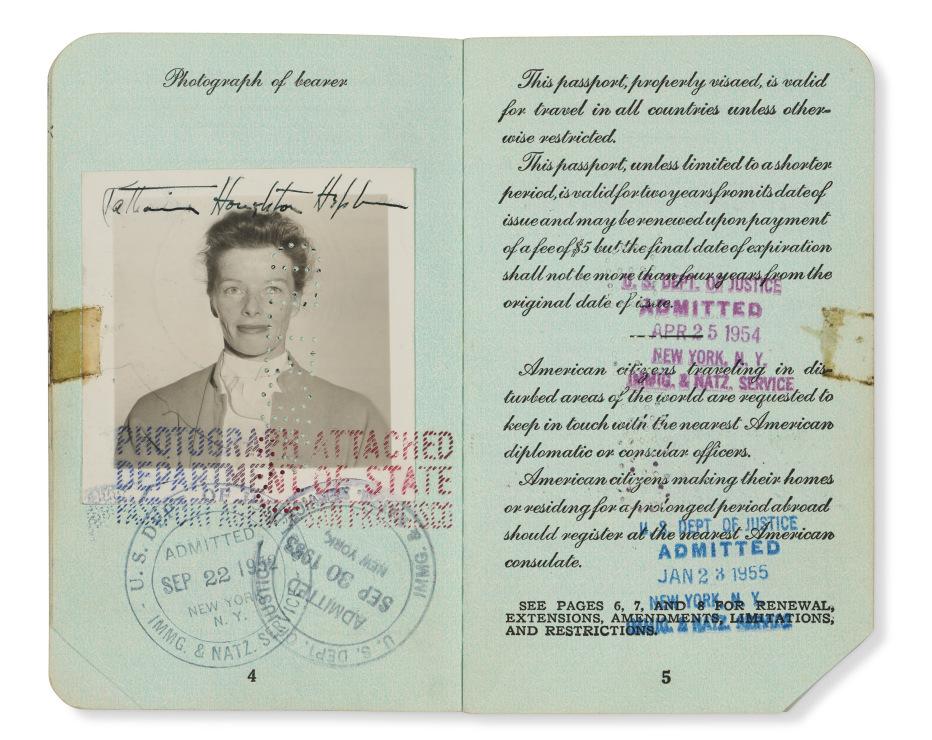 Photograph of bearer
Katharine Houghton Hepburn
PHOTOGRAPH ATTACHED
DEPARTMENT OF STATE
PASSPORT AGENCY SAN FRANCISCO
U. S. DEPT. OF JUSTICE
ADMITTED
SEP 22 1952
NEW YORK
N. Y.
IMMG. & NATZ. SERVICE
U. S. DEPT.
ADMITTED
SEP 30 1953
NEW YORK,
IMMG. &
4
This passport, properly visaed, is valid
for travel in all countries unless other-
wise restricted.
This passport, unless limited to a shorter
period, is valid for two years from its date of
issue and may be renewed upon payment
of a fee of $5 but the final date of expiration
shall not be more than four years from the
original date of issue.
U. S. DEPT. OF JUSTICE
ADMITTED
APR 25 1954
NEW YORK, N. Y.
IMMIG. & NATZ. SERVICE
American citizens traveling in dis-
turbed areas of the world are requested to
keep in touch with the nearest American
diplomatic or consular officers.
American citizens making their homes
or residing for a prolonged period abroad
should register at the nearest American
consulate.
U. S DEPT OF JUSTICE
ADMITTED
JAN 23 1955
NEW YORK, N. Y.
IMMIG. & NATZ. SERVICE
SEE PAGES 6, 7, AND 8 FOR RENEWAL,
EXTENSIONS, AMENDMENTS, LIMITATIONS,
AND RESTRICTIONS.
5